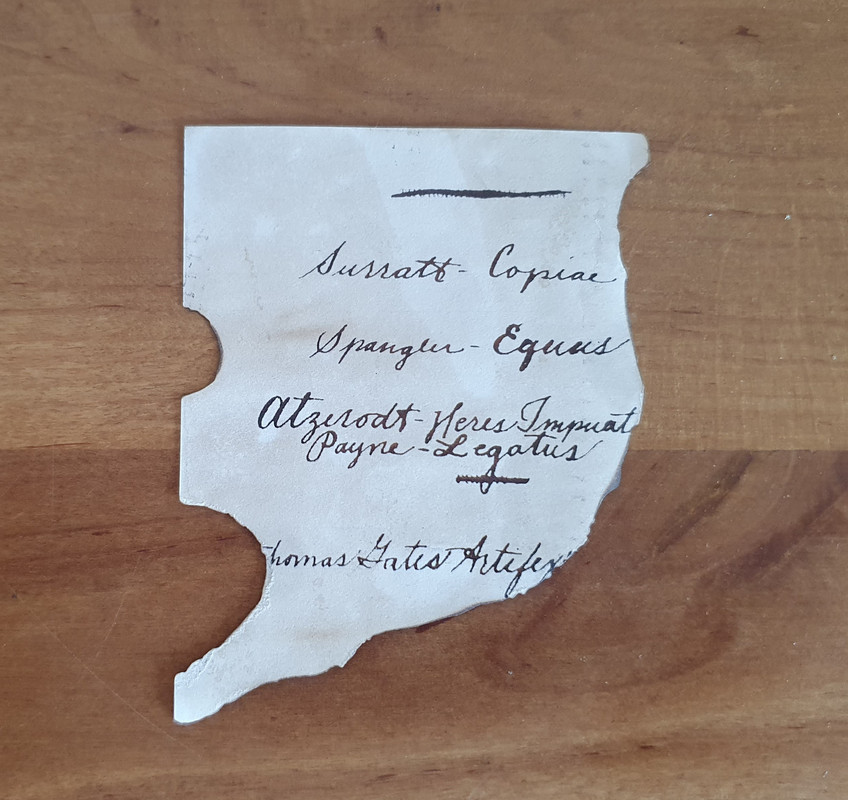 Surratt - Copiae
Spangler - Equus
Atzerodt - Heres Impuat
Payne - Legatus
homas Gates Artifex